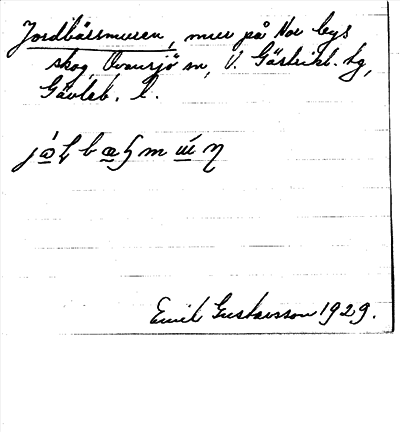 Jordbärsmuren, mur på Nor bys
skog, Ovansjö sn, V. Gästrikl. hg,
Gävleb. l.
Emil Gustavsson 1929.